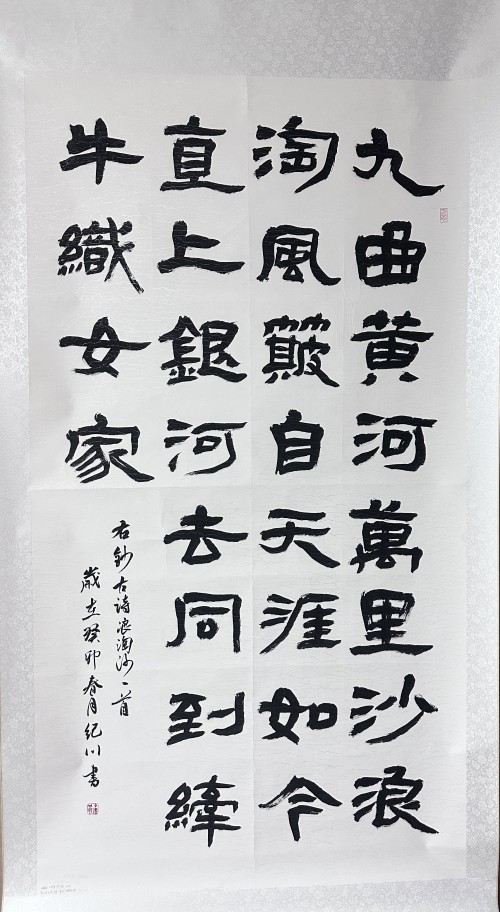 九曲黄河萬里沙浪
淘風簸自天涯如今
直上銀河去同到縴
牛織女家
右鈔古诗浪淘沙一首
歲在癸卯春月纪川書